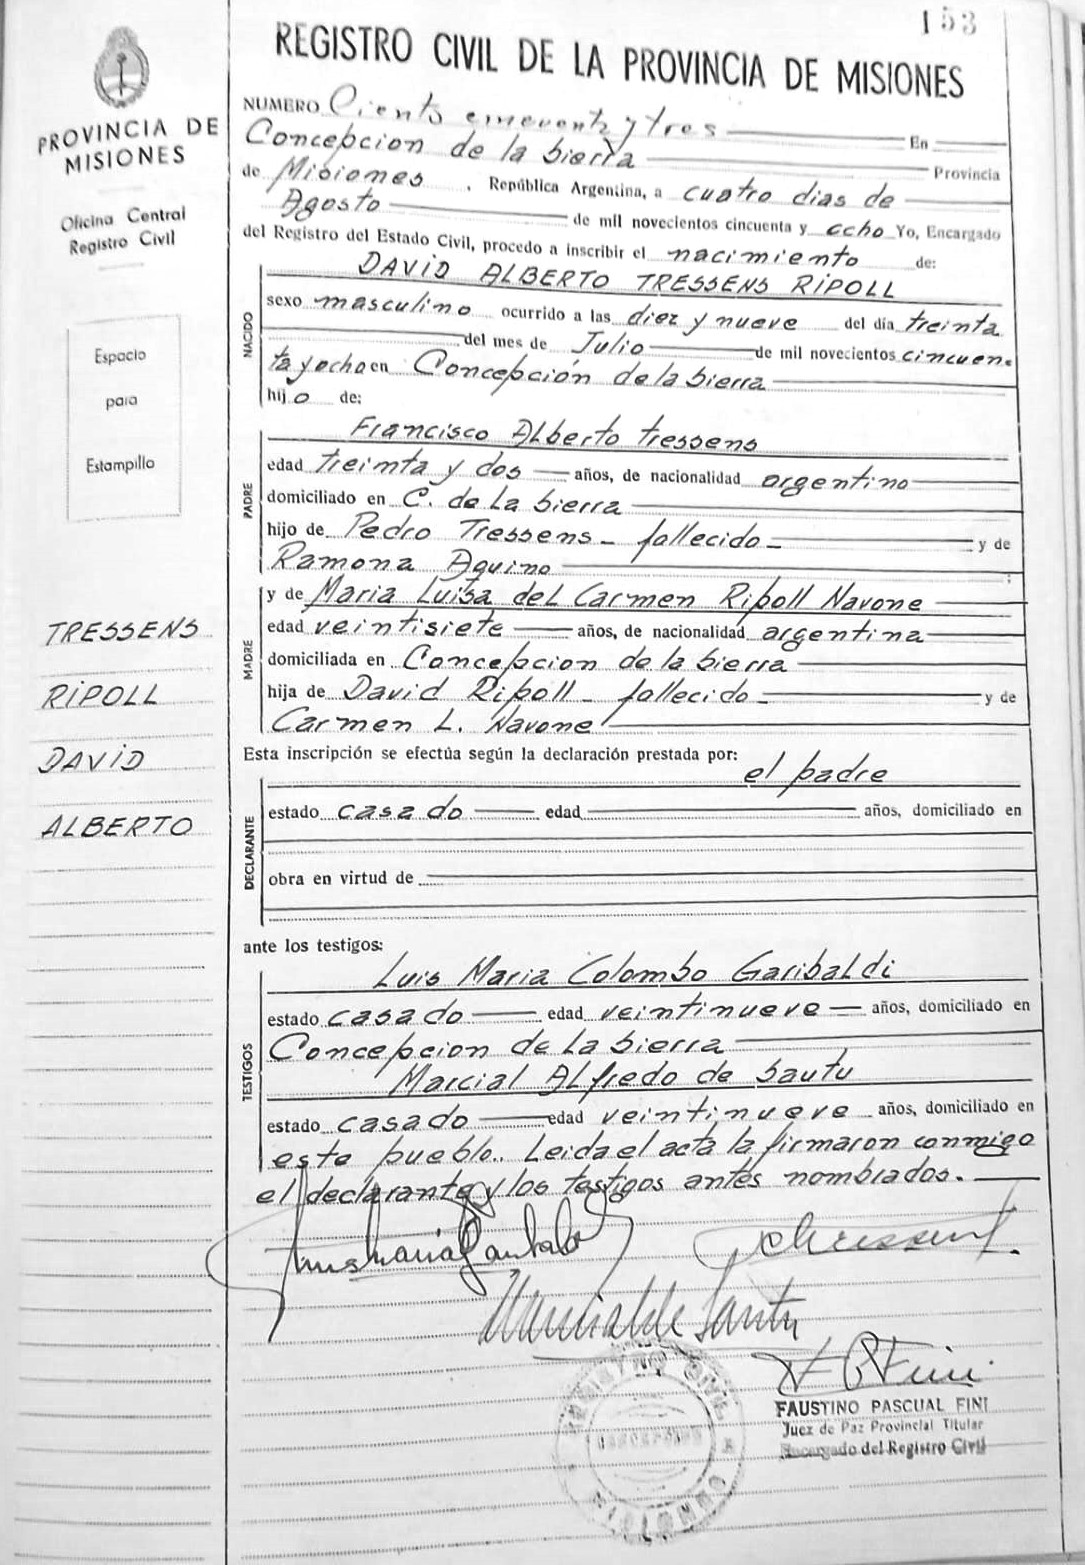 153
PROVINCIA DE
MISIONES
Oficina Central
Registro Civil
Espacio
para
Estampillo
TRESSENS
RIPOLL
DAVID
ALBERTO
REGISTRO CIVIL DE LA PROVINCIA DE MISIONES
NUMERO Ciento cincuenta y tres En
Concepcion de la Sierra Provincia
de Misiones , República Argentina, a cuatro dias de
Agosto de mil novecientos cincuenta y ocho Yo, Encargado
del Registro del Estado Civil, procedo a inscribir el nacimiento de:
NACIDO
DAVID ALBERTO TRESSENS RIPOLL
sexo masculino ocurrido a las diez y nueve del día treinta
del mes de Julio de mil novecientos cincuen
ta y ocho en Concepción de la Sierra
hijo de:
PADRE
Francisco Alberto Tressens
edad treimta y dos años, de nacionalidad argentino
domiciliado en C. de La Sierra
hijo de Pedro Tressens - fallecido - y de
Ramona Aquino ;
MADRE
y de Maria Luisa del Carmen Ripoll Navone
edad veintisiete años, de nacionalidad argentina
domiciliada en Concepcion de la Sierra
hija de David Ripoll - fallecido - y de
Carmen L. Navone
Esta inscripción se efectúa según la declaración prestada por:
DECLARANTE
el padre
estado casado edad años, domiciliado en
obra en virtud de
ante los testigos:
TESTIGOS
Luis Maria Colombo Garibaldi
estado casado edad veintinueve años, domiciliado en
Concepcion de La Sierra
Marcial Alfredo de Santu
estado casado edad veintinueve años, domiciliado en
este pueblo.. Leida el acta la firmaron conmigo
el declarante y los testigos antes nombrados.
Marcial de Santu
REGISTRO CIVIL
CONCEPCION
MISIONES
FAUSTINO PASCUAL FINI
Juez de Paz Provincial Titular
Encargado del Registro Civil